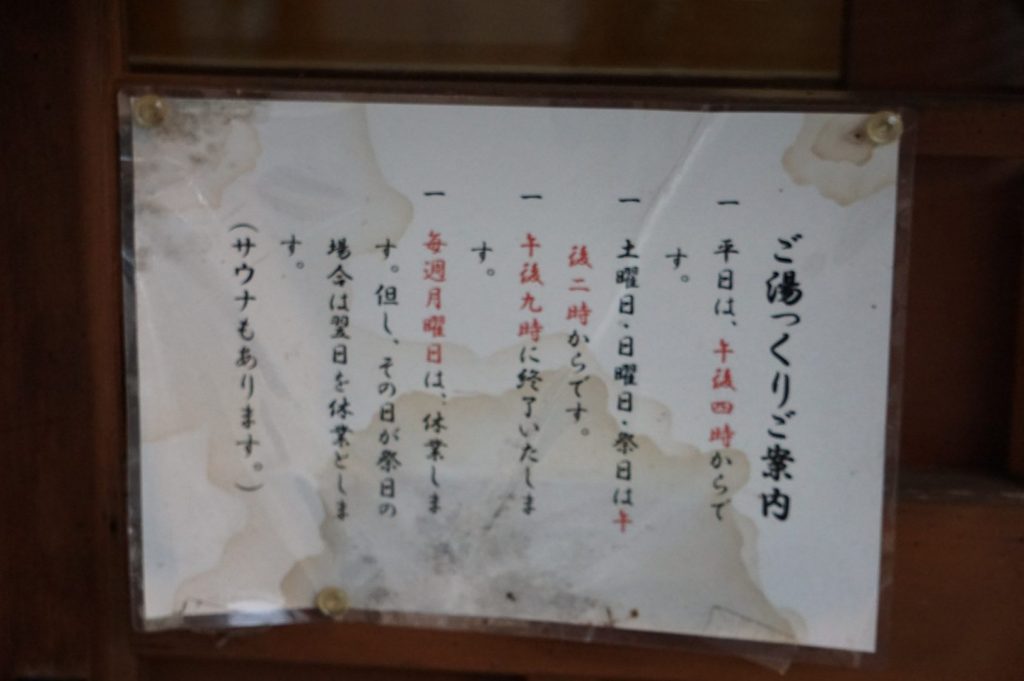 ご湯っくりご案内
一 平日は、午後四時からで
す。
一 土曜日・日曜日・祭日は午
後二時からです。
一 午後九時に終了いたしま
す。
一 毎週月曜日は、休業しま
す。但し、その日が祭日の
場合は翌日を休業としま
す。
（サウナもあります。）